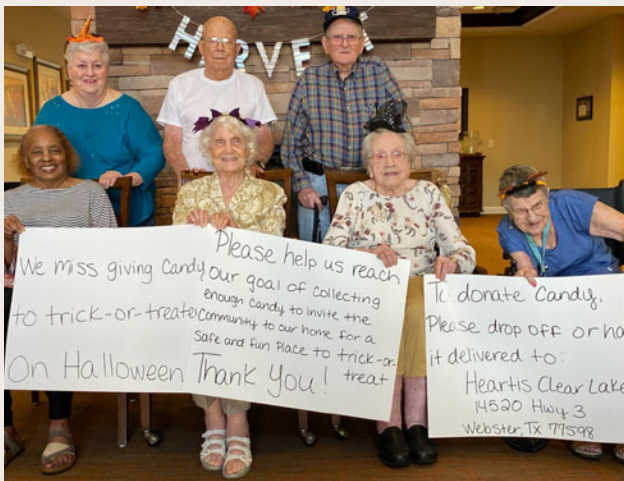 H RVE
We miss giving Candy
to trick-or-treate
On Halloween
Please help us reach
our goal of collecting
enough candy to invite the
community to our home for a
safe and fun place to trick-or-
treat
Thank You!
To donate Candy,
Please drop off or ha
it delivered to:
Heartis Clear Lake
14520 Hwy 3
Webster, Tx 77598